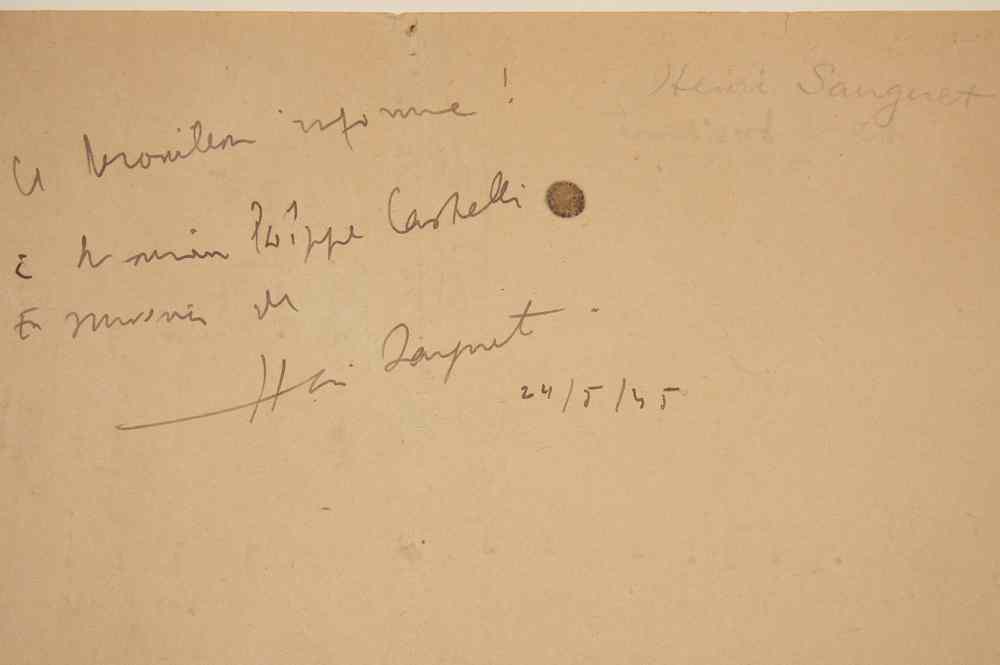 Ce brouillon informe !
à Monsieur Philippe Castelli
En souvenir de
Henri Sauguet
24/5/45
Henri Sauguet